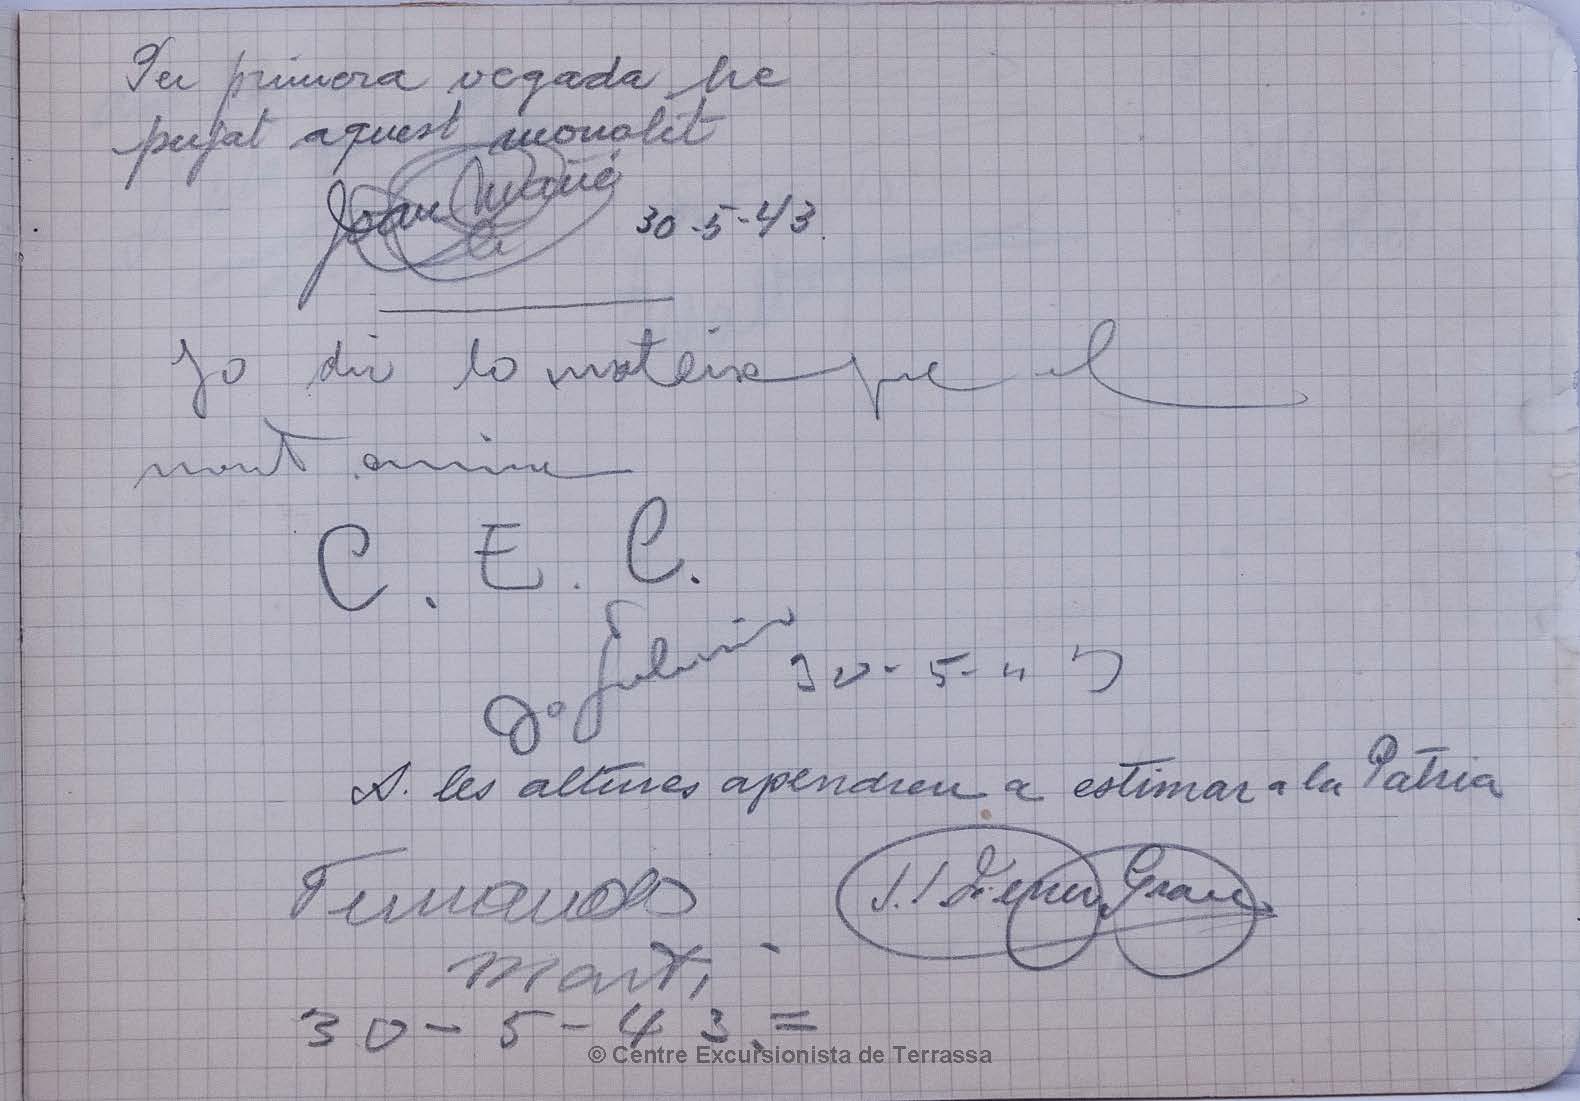 Per primera vegada he
pujat aquest monolit
Joan Mañé
30-5-43.
Jo dic lo mateix que el
nout amine
C. E. C.
30-5-43
A. les altures apendreu a estimar a la Patria
Fernando
Martí
J. Grau
30-5-43=
© Centre Excursionista de Terrassa